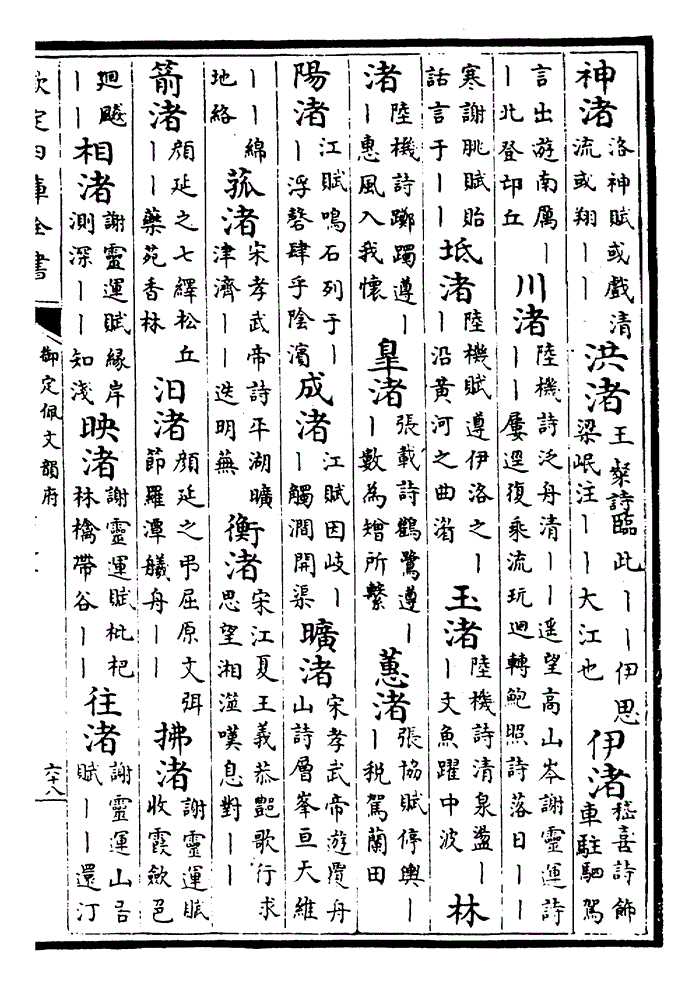 神渚洛神賦或戲清流或翔｜｜洪渚王粲詩臨此｜｜伊思梁岷注｜｜大江也伊渚嵇喜詩飾車駐駟駕
言出遊南厲｜｜北登邙丘川渚陸機詩泛舟清｜｜遥望高山岑謝靈運詩｜｜屢逕復乘流玩迴轉鮑照詩落日｜｜
寒謝朓賦貽話言于｜｜坻渚陸機賦遵伊洛之｜｜沿黃河之曲湝玉渚陸機詩清泉盪｜｜文魚躍中波林
渚陸機詩躑躅遵｜｜惠風入我懷皐渚張載詩鶴鷺遵｜｜數為矰所繫蕙渚張協賦停輿｜｜税駕蘭田
陽渚江賦鳴石列于｜｜浮磬肆乎陰濱成渚江賦因岐｜｜觸澗開渠曠渚宋孝武帝遊覆舟山詩層峯亘天維
｜｜綿地絡菰渚宋孝武帝詩平湖曠津濟｜｜迭明蕪衡渚宋江夏王義恭艷歌行求思望湘澨嘆息對｜｜
箭渚顔延之七繹松丘｜｜藥苑香林汨渚顔延之弔屈原文弭節羅潭艤舟｜｜拂渚謝靈運賦收霞斂色
迴飈｜｜相渚謝靈運賦縁岸測深｜｜知淺映渚謝靈運賦枇杷林檎帶谷｜｜往渚謝靈運山居賦｜｜還汀
欽定四庫全書
御定佩文韻府
六十八